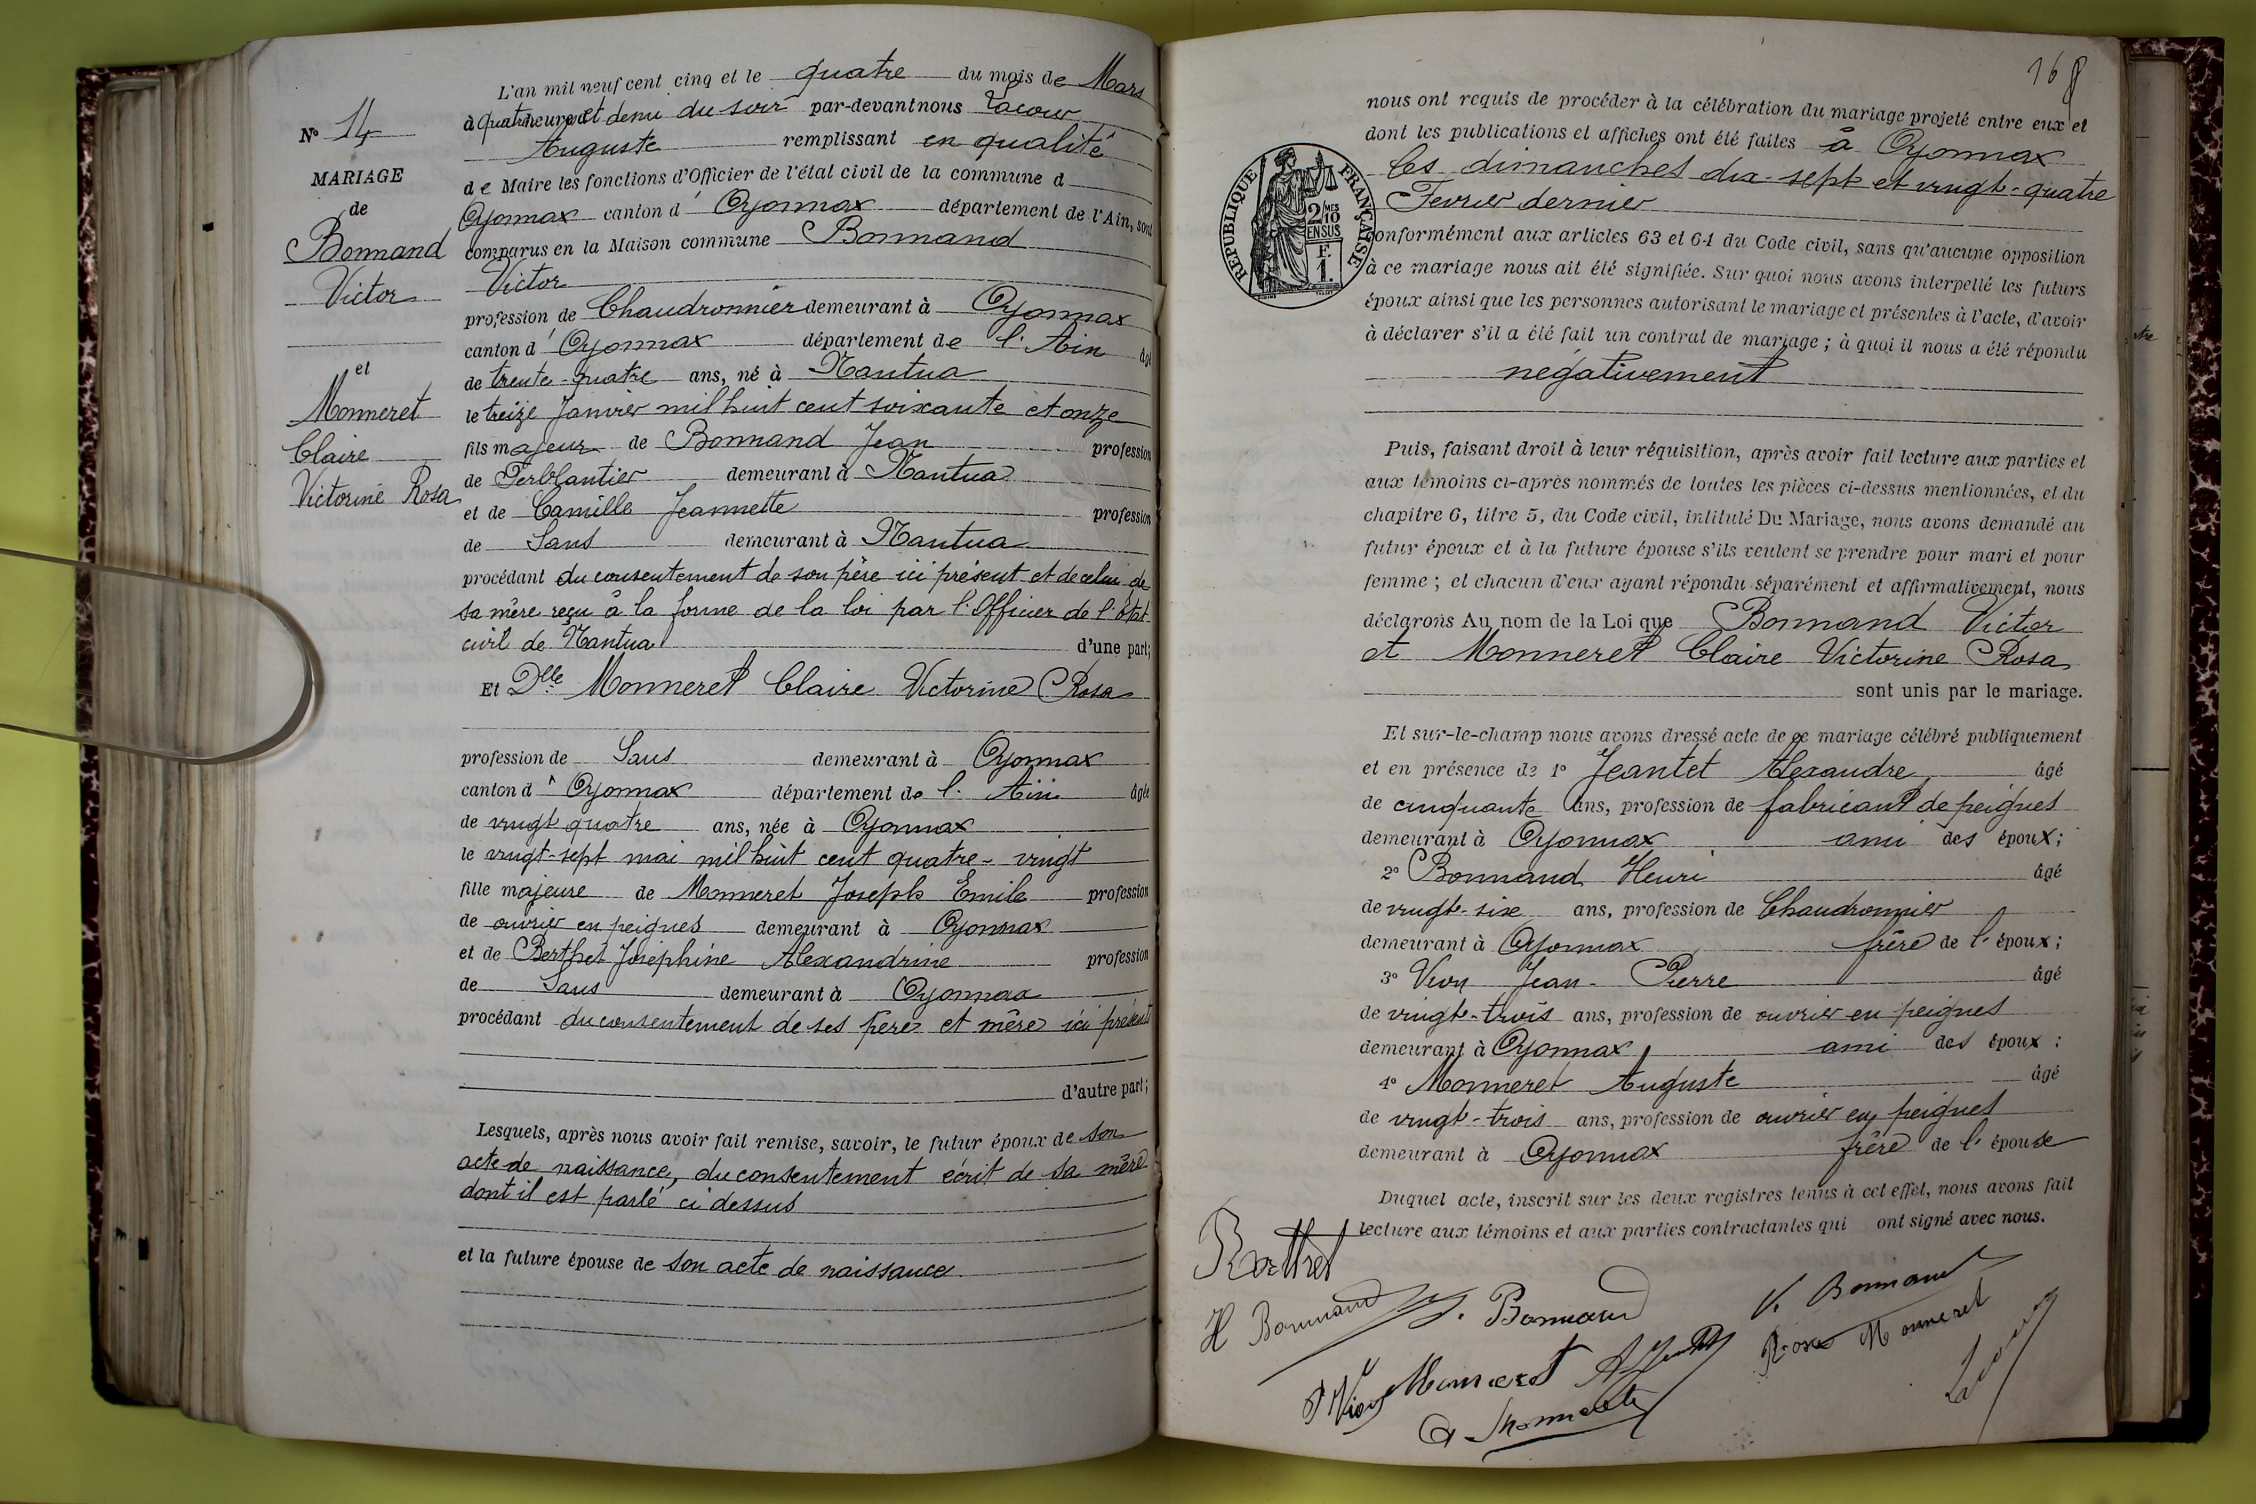 L'an mil neuf cent cinq et le quatre du mois de Mars
à quatre heures et demi du soir par-devant nous Lacour
Auguste remplissant en qualité
de Maire les fonctions d'Officier de l'état civil de la commune d
Oyonnax canton d' Oyonnax département de l'Ain, sont
comparus en la Maison commune Bonnand
Victor
profession de Chaudronnier demeurant à Oyonnax
canton d' Oyonnax département de l'Ain âgé
de trente-quatre ans, né à Nantua
le treize Janvier mil huit cent soixante et onze
fils majeur de Bonnand Jean profession
de Ferblantier demeurant à Nantua
et de Camille Jeannette profession
de Sans demeurant à Nantua
procédant du consentement de son père ici présent et de celui de
sa mère reçu à la forme de la loi par l'Officier de l'état
civil de Nantua d'une part;
Et Dlle Monneret Claire Victorine Rosa
profession de Sans demeurant à Oyonnax
canton d' Oyonnax département de l'Ain âgée
de vingt quatre ans, née à Oyonnax
le vingt-sept mai mil huit cent quatre-vingt
fille majeure de Monneret Joseph Emile profession
de ouvrier en peignes demeurant à Oyonnax
et de Berthet Joséphine Alexandrine profession
de Sans demeurant à Oyonnax
procédant du consentement de ses père et mère ici présents
d'autre part;
Lesquels, après nous avoir fait remise, savoir, le futur époux de son
acte de naissance, du consentement écrit de sa mère
dont il est parlé ci dessus
et la future épouse de son acte de naissance
No 14
MARIAGE
de
Bonnand
Victor
et
Monneret
Claire
Victorine Rosa
168
nous ont requis de procéder à la célébration du mariage projeté entre eux et
dont les publications et affiches ont été faites à Oyonnax
les dimanches dix-sept et vingt-quatre
Fevrier dernier
conformément aux articles 63 et 64 du Code civil, sans qu'aucune opposition
à ce mariage nous ait été signifiée. Sur quoi nous avons interpellé les futurs
époux ainsi que les personnes autorisant le mariage et présentes à l'acte, d'avoir
à déclarer s'il a été fait un contrat de mariage; à quoi il nous a été répondu
négativement
RÉPUBLIQUE FRANÇAISE
2 MES
10
EN SUS
F.
1
Puis, faisant droit à leur réquisition, après avoir fait lecture aux parties et
aux témoins ci-après nommés de toutes les pièces ci-dessus mentionnées, et du
chapitre 6, titre 5, du Code civil, intitulé Du Mariage, nous avons demandé au
futur époux et à la future épouse s'ils veulent se prendre pour mari et pour
femme; et chacun d'eux ayant répondu séparément et affirmativement, nous
déclarons Au nom de la Loi que Bonnand Victor
et Monneret Claire Victorine Rosa
sont unis par le mariage.
Et sur-le-champ nous avons dressé acte de ce mariage célébré publiquement
et en présence de 1o Jeantet Alexandre âgé
de cinquante ans, profession de fabricant de peignes
demeurant à Oyonnax ami des époux;
2o Bonnand Henri âgé
de vingt-six ans, profession de Chaudronnier
demeurant à Oyonnax frère de l'époux;
3o Vion Jean-Pierre âgé
de vingt-trois ans, profession de ouvrier en peignes
demeurant à Oyonnax ami des époux;
4o Monneret Auguste âgé
de vingt-trois ans, profession de ouvrier en peignes
demeurant à Oyonnax frère de l'épouse
Duquel acte, inscrit sur les deux registres tenus à cet effet, nous avons fait
lecture aux témoins et aux parties contractantes qui ont signé avec nous.
Berthet
H Bonnand J. Bonnand V. Bonnand
Rosa Monneret
Vion Monneret A Jeantet Lacour
A Monneret